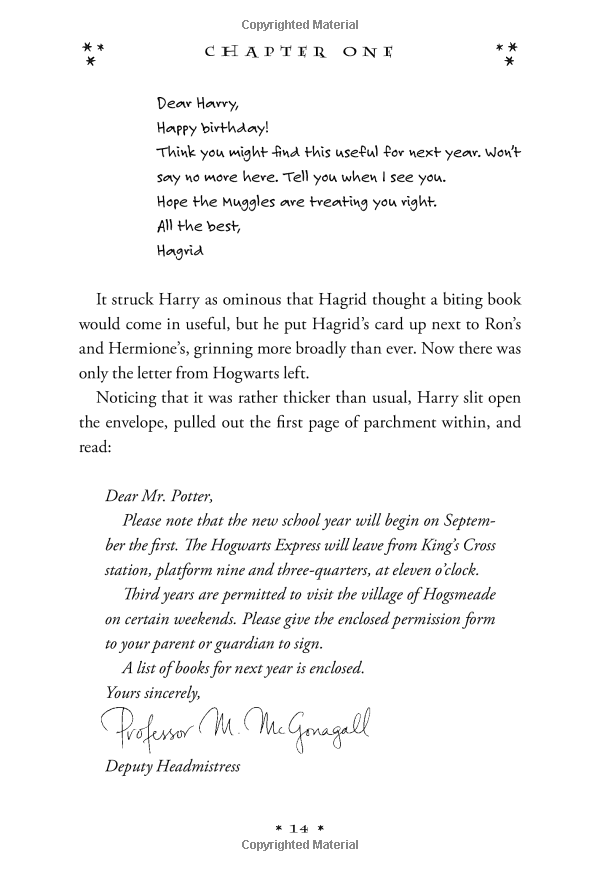 Copyrighted Material
CHAPTER ONE
Dear Harry,
Happy birthday!
Think you might find this useful for next year. Won't
say no more here. Tell you when I see you.
Hope the Muggles are treating you right.
All the best,
Hagrid
It struck Harry as ominous that Hagrid thought a biting book
would come in useful, but he put Hagrid's card up next to Ron's
and Hermione's, grinning more broadly than ever. Now there was
only the letter from Hogwarts left.
Noticing that it was rather thicker than usual, Harry slit open
the envelope, pulled out the first page of parchment within, and
read:
Dear Mr. Potter,
Please note that the new school year will begin on Septem-
ber the first. The Hogwarts Express will leave from King's Cross
station, platform nine and three-quarters, at eleven o'clock.
Third years are permitted to visit the village of Hogsmeade
on certain weekends. Please give the enclosed permission form
to your parent or guardian to sign.
A list of books for next year is enclosed.
Yours sincerely,
Professor M. McGonagall
Deputy Headmistress
* 14 *
Copyrighted Material